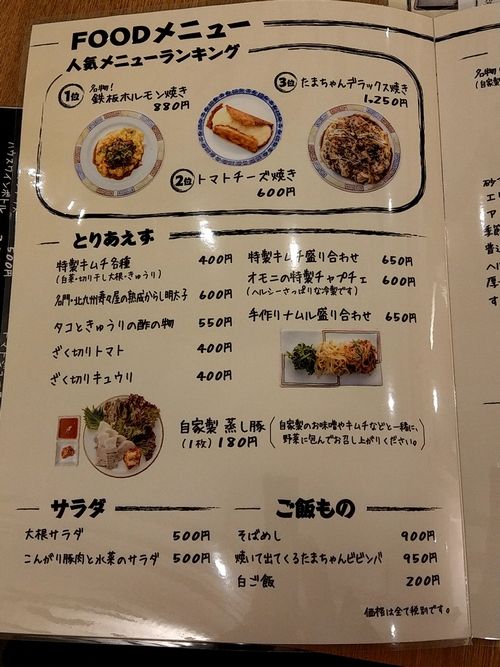 FOODメニュー
人気メニューランキング
1位 名物!
鉄板ホルモン焼き
880円
3位 たまちゃんデラックス焼き
1,250円
2位 トマトチーズ焼き
600円
とりあえず
特製キムチ各種 400円
(白菜・切り干し大根・きゅうり)
名門・北九州寿々屋の熟成からし明太子 600円
タコときゅうりの酢の物 550円
ざく切りトマト 400円
ざく切りキュウリ 400円
特製キムチ盛り合わせ 650円
オモニの特製チャプチェ 600円
(ヘルシーさっぱりな冷製です)
手作りナムル盛り合わせ 650円
自家製 蒸し豚
(1枚) 180円
(自家製のお味噌やキムチなどと一緒に、
野菜に包んでお召し上がりください。)
サラダ
大根サラダ 500円
こんがり豚肉と水菜のサラダ 500円
ご飯もの
そばめし 900円
焼いて出てくるたまちゃんビビンバ 950円
白ご飯 200円
価格は全て税別です。
ハウスワインボトル
500円